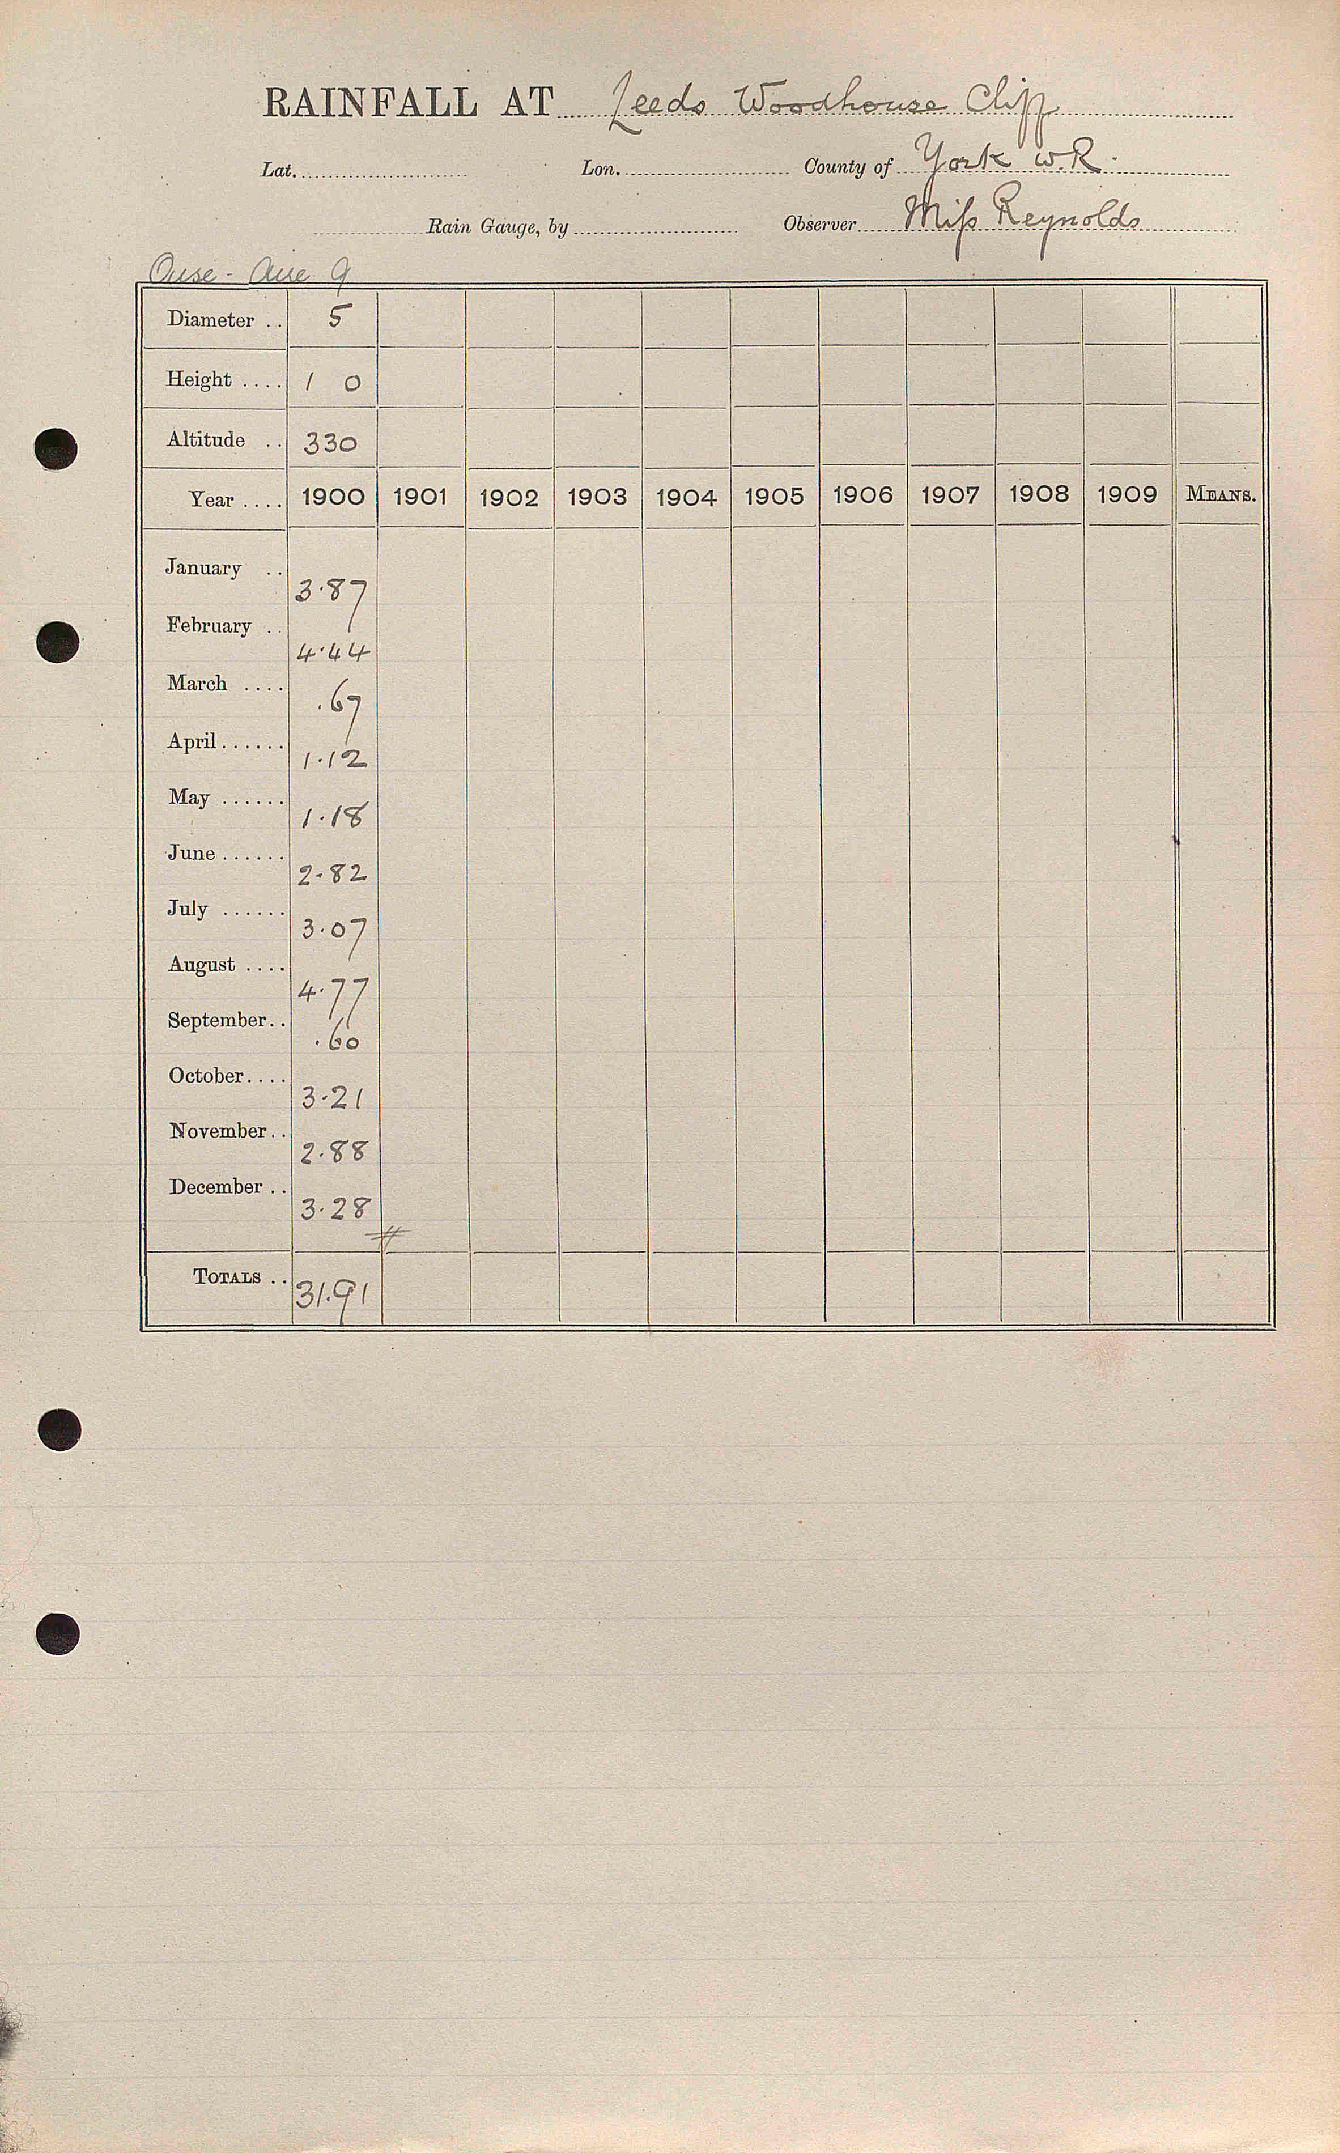 RAINFALL AT Leeds Woodhouse Cliff
Lat. Lon. County of York W.R.
Rain Gauge, by Observer Miss Reynolds
Ouse - Aire 9
Diameter .. 5
Height .... 1 0
Altitude .. 330
Year .... 1900 1901 1902 1903 1904 1905 1906 1907 1908 1909 MEANS.
January .. 3.87
February .. 4.44
March .... .67
April ...... 1.12
May ...... 1.18
June ...... 2.82
July ...... 3.07
August .... 4.77
September.. .60
October.... 3.21
November.. 2.88
December .. 3.28
TOTALS .. 31.91